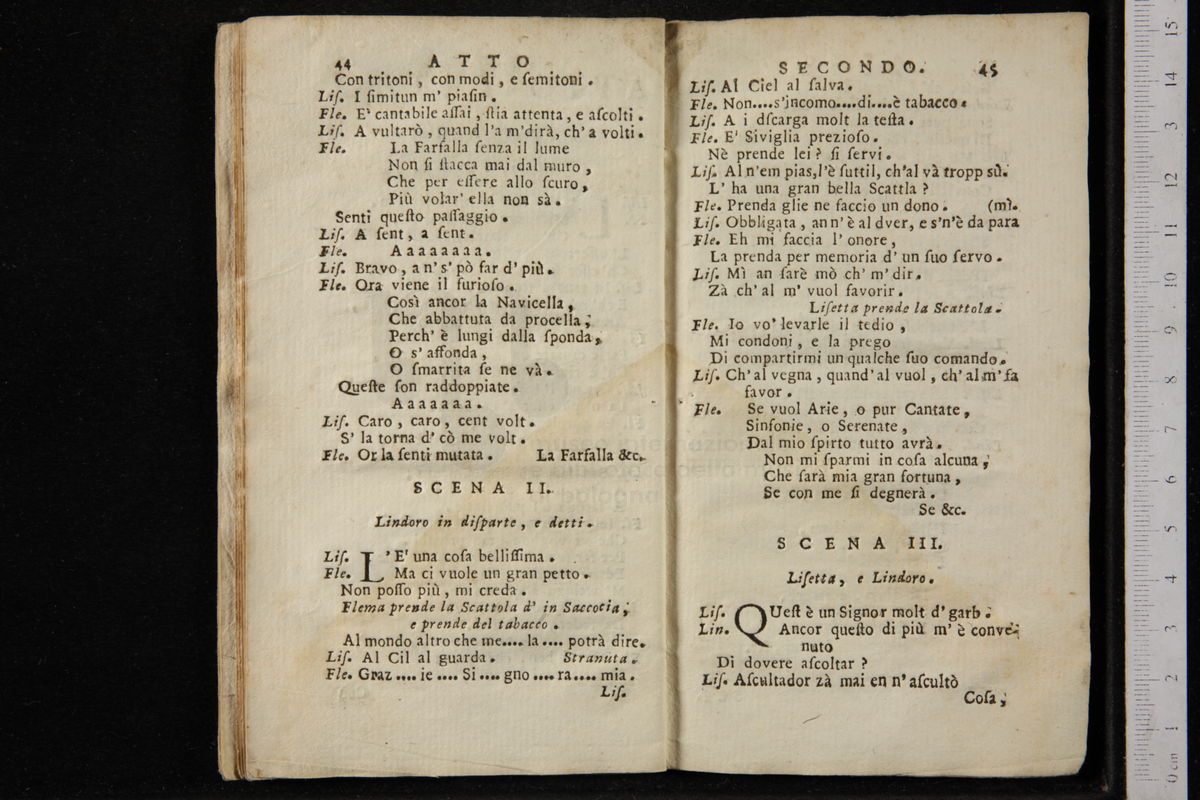 44 ATTO
Con tritoni, con modi, e ſemitoni.
Liſ. I ſimitun m' piaſin.
Fle. E' cantabile aſſai, ſtia attenta, e aſcolti.
Liſ. A vultarò, quand l'a m'dirà, ch'a volti.
Fle. La Farfalla ſenza il lume
Non ſi ſtacca mai dal muro,
Che per eſſere allo ſcuro,
Più volar' ella non sà.
Senti queſto paſſaggio.
Liſ. A ſent, a ſent.
Fle. Aaaaaaaa.
Liſ. Bravo, a n' s' pò far d' più.
Fle. Ora viene il furioſo.
Così ancor la Navicella,
Che abbattuta da procella;
Perch' è lungi dalla ſponda,
O s' affonda,
O ſmarrita ſe ne và.
Queſte ſon raddoppiate.
Aaaaaaa.
Liſ. Caro, caro, cent volt.
S' la torna d' cò me volt.
Fle. Or la ſenti mutata. La Farfalla &c.
SCENA II.
Lindoro in diſparte, e detti.
Liſ. L'E' una coſa belliſſima.
Fle. Ma ci vuole un gran petto.
Non poſſo più, mi creda.
Flema prende la Scattola d' in Saccocia,
e prende del tabacco.
Al mondo altro che me.... la.... potrà dire.
Liſ. Al Cil al guarda. Stranuta.
Fle. Graz.... ie.... Si.... gno.... ra.... mia.
Liſ.
SECONDO. 45
Liſ. Al Ciel al ſalva.
Fle. Non....s'incomo....di....è tabacco.
Liſ. A i dſcarga molt la teſta.
Fle. E' Siviglia prezioſo.
Nè prende lei? ſi ſervi.
Liſ. Al n'em pias, l'è ſuttil, ch'al và tropp sù.
L' ha una gran bella Scattla?
Fle. Prenda glie ne faccio un dono. (mì.
Liſ. Obbligata, an n' è al dver, e s'n'è da para
Fle. Eh mi faccia l' onore,
La prenda per memoria d' un ſuo ſervo.
Liſ. Mì an ſarè mò ch' m' dir.
Zà ch' al m' vuol favorir.
Liſetta prende la Scattola.
Fle. Io vo' levarle il tedio,
Mi condoni, e la prego
Di compartirmi un qualche ſuo comando.
Liſ. Ch' al vegna, quand' al vuol, ch' al m' fa
favor.
Fle. Se vuol Arie, o pur Cantate,
Sinfonie, o Serenate,
Dal mio ſpirto tutto avrà.
Non mi ſparmi in coſa alcuna;
Che ſarà mia gran fortuna,
Se con me ſi degnerà.
Se &c.
SCENA III.
Liſetta, e Lindoro.
Liſ. QUeſt è un Signor molt d' garb.
Lin. Ancor queſto di più m' è conve-
nuto
Di dovere aſcoltar?
Liſ. Aſcultador zà mai en n' aſcultò
Coſa;